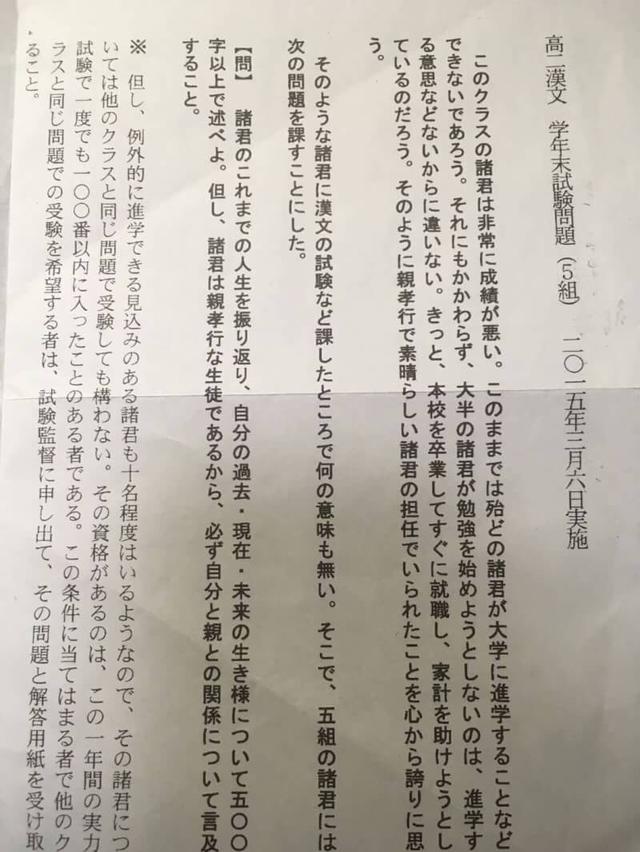 高二漢文　学年末試験問題（５組）　二〇一五年三月六日実施
このクラスの諸君は非常に成績が悪い。このままでは殆どの諸君が大学に進学することなど
できないであろう。それにもかかわらず、大半の諸君が勉強を始めようとしないのは、進学す
る意思などないからに違いない。きっと、本校を卒業してすぐに就職し、家計を助けようとし
ているのだろう。そのように親孝行で素晴らしい諸君の担任でいられたことを心から誇りに思
う。
そのような諸君に漢文の試験など課したところで何の意味も無い。そこで、五組の諸君には
次の問題を課すことにした。
【問】　諸君のこれまでの人生を振り返り、自分の過去・現在・未来の生き様について五〇〇
字以上で述べよ。但し、諸君は親孝行な生徒であるから、必ず自分と親との関係について言及
すること。
※　但し、例外的に進学できる見込みのある諸君も十名程度はいるようなので、その諸君につ
いては他のクラスと同じ問題で受験しても構わない。その資格があるのは、この一年間の実力
試験で一度でも一〇〇番以内に入ったことのある者である。この条件に当てはまる者で他のク
ラスと同じ問題での受験を希望する者は、試験監督に申し出て、その問題と解答用紙を受け取
ること。